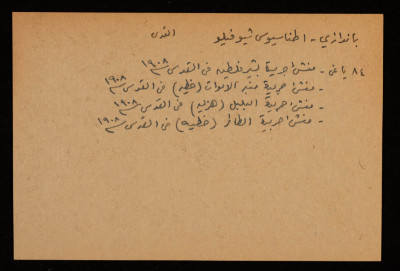 باندازي - اطناسيوس ثيوفيلو القدس
٨٤ يا من - منشئ جريدة بشير فلسطين في القدس ١٩٠٨
- منشئ جريدة منبر الاموات (خطية) في القدس ١٩٠٨
- منشئ جريدة البلبل (هزلية) في القدس ١٩٠٨
- منشئ جريدة الطائر (خطية) في القدس ١٩٠٨